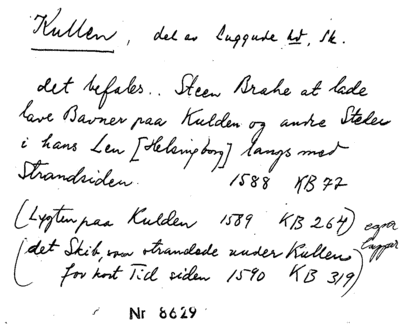 Kullen, del av Luggude hd, Sk.
det befales.. Steen Brahe at lade
lave Bavner paa Kulden og andre Steder
i hans Len [Helsingborg] langs med
Strandsiden. 1588 KB 77
(Lygten paa Kulden 1589 KB 264) egna
(det Skib, som strandede under Kullen lappar
for kort Tid siden 1590 KB 319)
Nr 8629